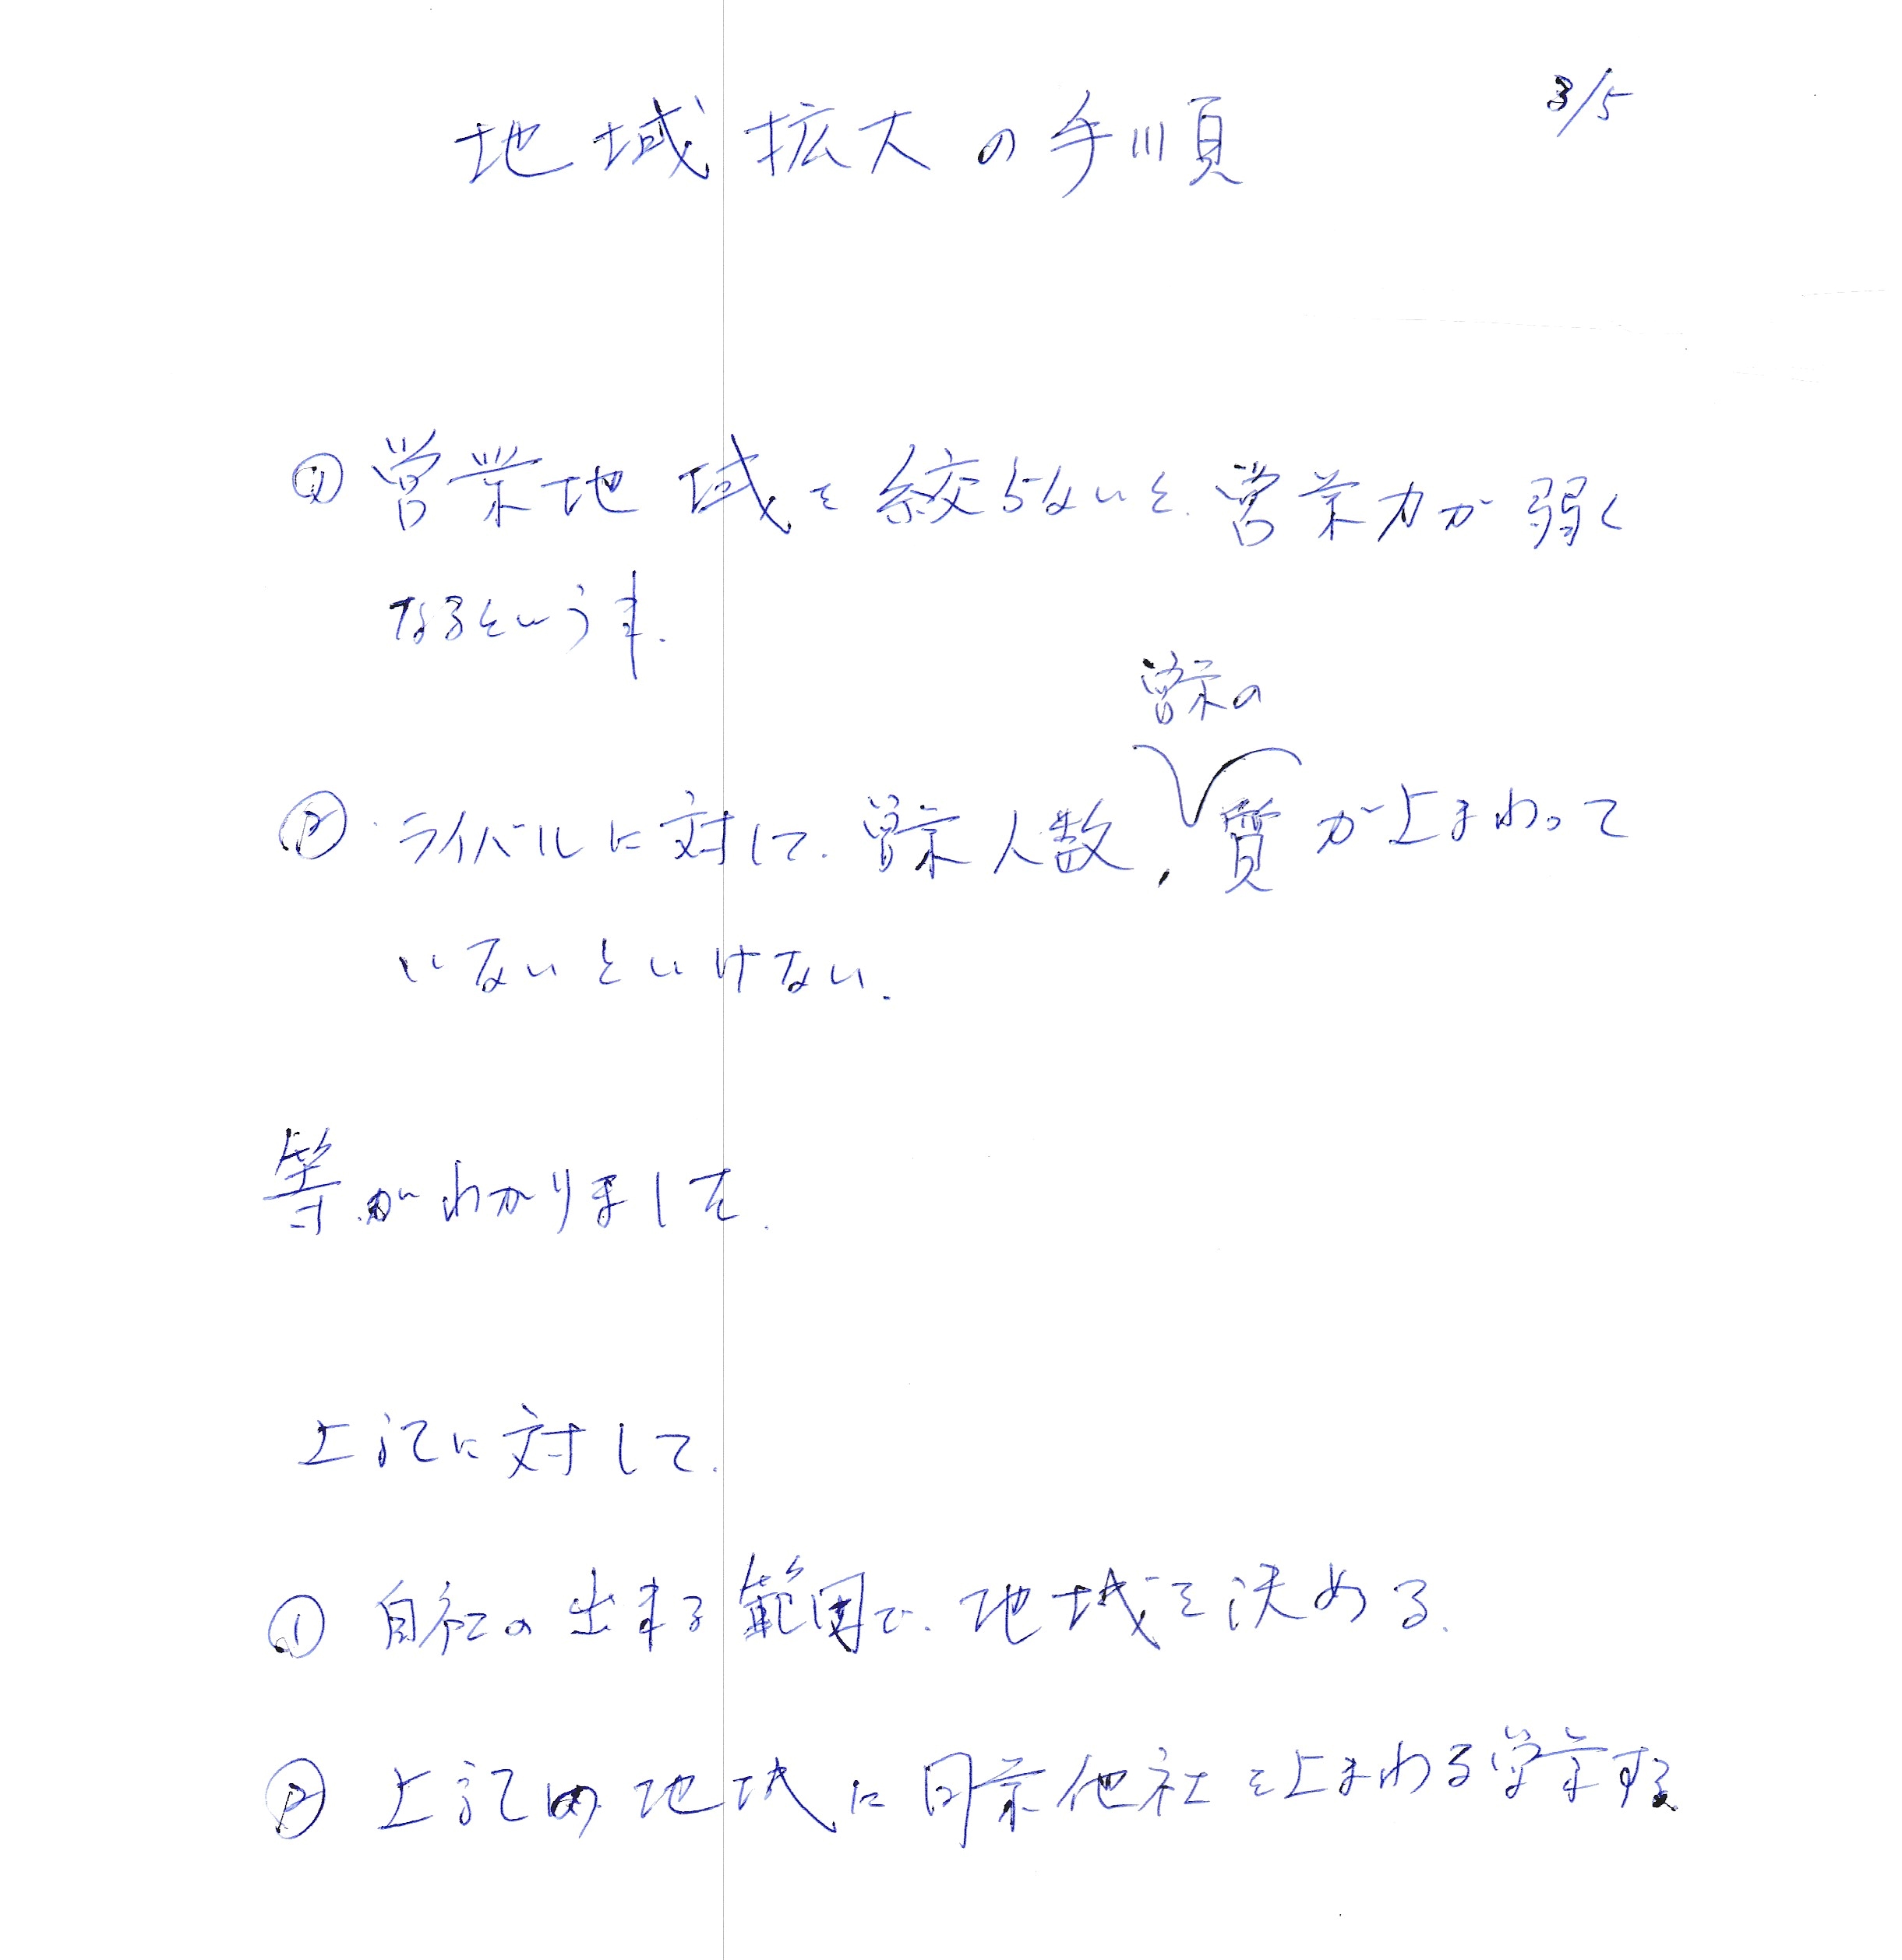 3/5
地域拡大の手順
① 営業地域を絞らないと、営業力が弱く
なるという事.
営業の
② ライバルに対して、営業人数、質が上まわって
いないといけない.
等がわかりました.
上記に対して.
① 自社の出来る範囲で、地域を決める.
② 上記の地域に同業他社を上まわる営業する